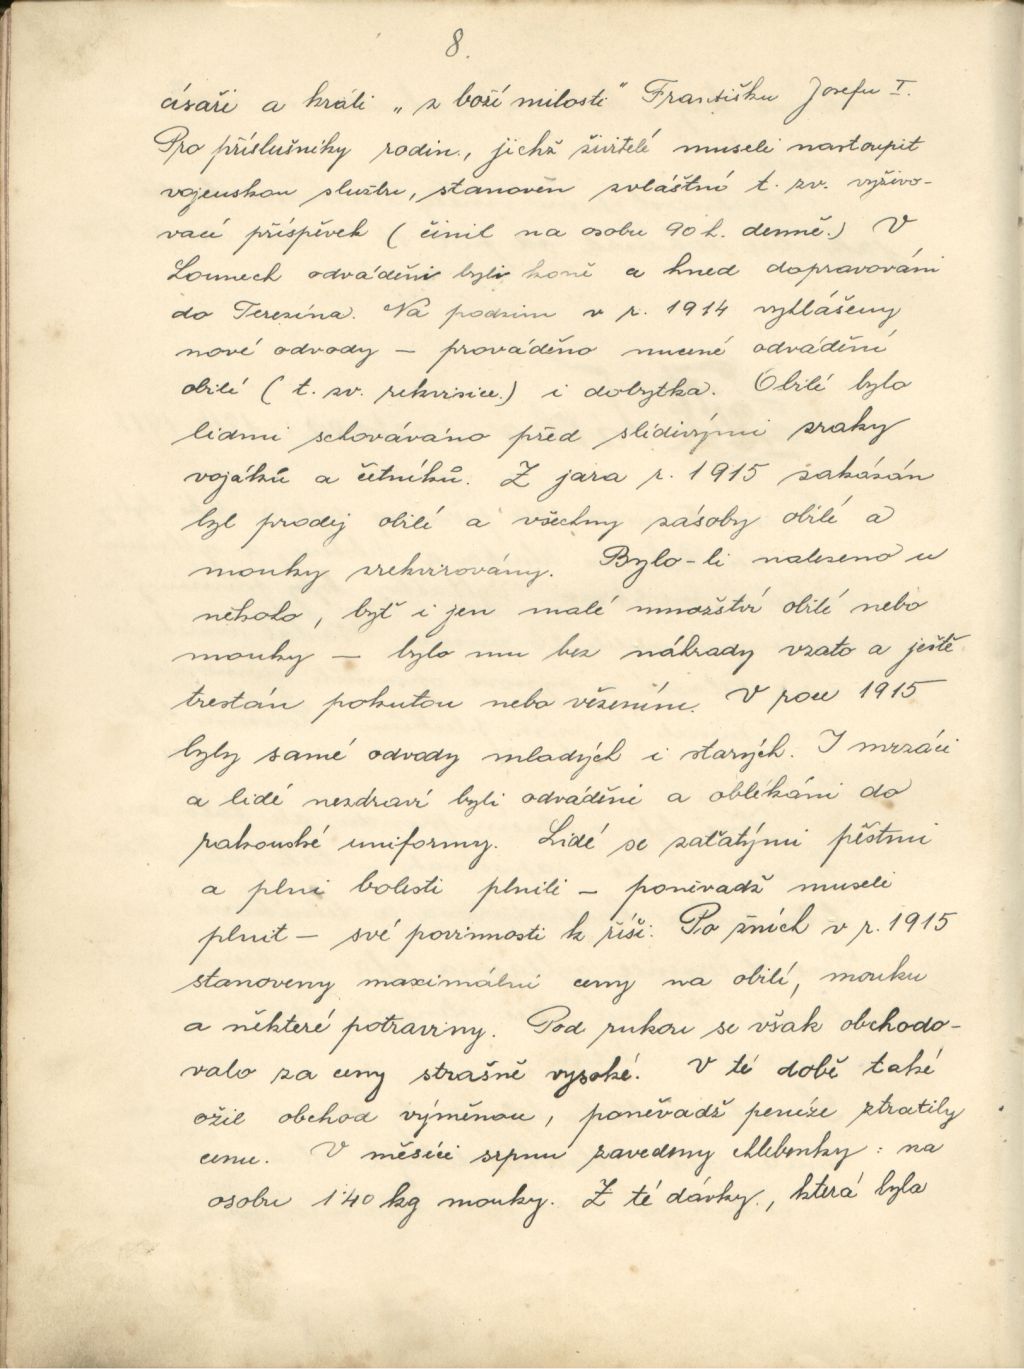 8.
císaři a králi „z boží milosti" Františku Josefu I.
Pro příslušníky rodin, jichž živitelé museli nastoupit
vojenskou službu, stanoven zvláštní t. zv. vyživo-
vací příspěvek ( činil na osobu 90 h. denně.) V
Lounech odváděni byli koně a hned dopravováni
do Terezína. Na podzim v r. 1914 vyhlášeny
nové odvody – prováděno nucené odvádění
obilí ( t. zv. rekvisice.) i dobytka. Obilí bylo
lidmi schováváno před slídivými zraky
vojáků a četníků. Z jara r. 1915 zakázán
byl prodej obilí a všechny zásoby obilí a
mouky zrekvirovány. Bylo-li nalezeno u
někoho, byť i jen malé množství obilí nebo
mouky – bylo mu bez náhrady vzato a ještě
trestán pokutou nebo vězením. V roce 1915
byly samé odvody mladých i starých. I mrzáci
a lidé nezdraví byli odváděni a oblékáni do
rakouské uniformy. Lidé se zaťatými pěstmi
a plni bolesti plnili – poněvadž museli
plnit – své povinnosti k říši. Po žních v r. 1915
stanoveny maximální ceny na obilí, mouku
a některé potraviny. Pod rukou se však obchodo-
valo za ceny strašně vysoké. V té době také
ožil obchod výměnou, poněvadž peníze ztratily
cenu. V měsíci srpnu zavedeny chlebenky : na
osobu 1·40 kg mouky. Z té dávky, která byla